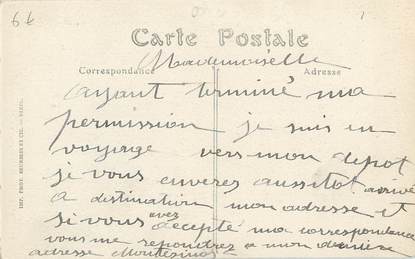 6 €
Carte Postale
Correspondance
Adresse
Mademoiselle
ayant terminé ma
permission je suis en
voyage vers mon depot
je vous enveres aussitot arrivé
a destination mon adresse et
si vous avez accepté ma correspondance
vous me repondrez a mon derniere
adresse